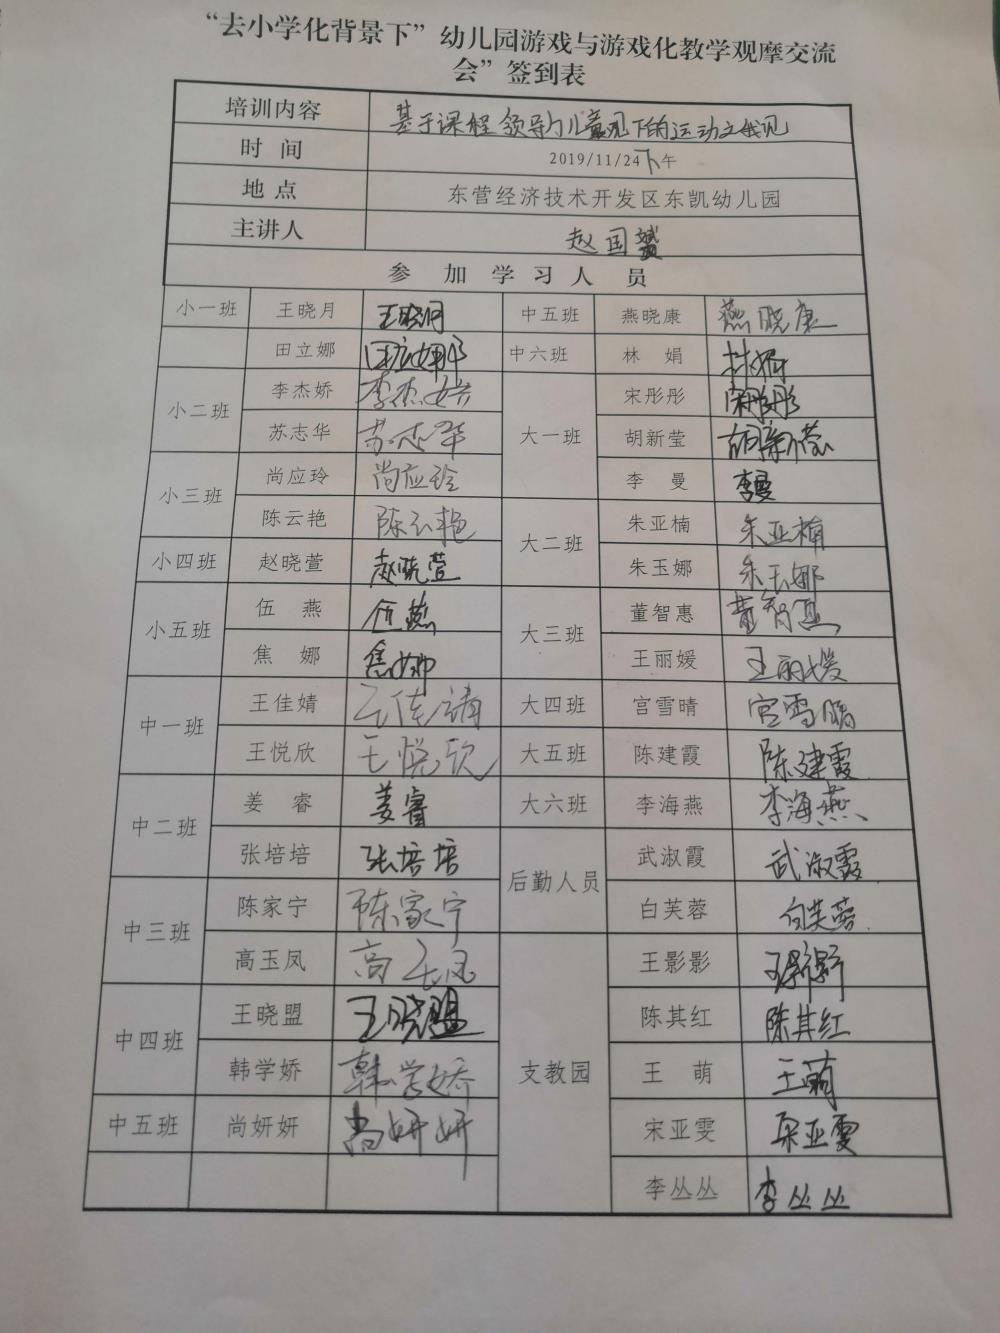 “去小学化背景下”幼儿园游戏与游戏化教学观摩交流
会”签到表
培训内容 基于课程领导力儿童观下的运动之我见
时 间 2019/11/24下午
地 点 东营经济技术开发区东凯幼儿园
主讲人 赵国
参 加 学 习 人 员
小一班 王晓月 王晓月 中五班 燕晓康 燕晓康
田立娜 田立娜 中六班 林 娟 林娟
小二班 李杰娇 李杰娇 大一班 宋彤彤 宋彤彤
苏志华 苏志华 胡新莹 胡新莹
小三班 尚应玲 尚应玲 李 曼 李曼
陈云艳 陈云艳 大二班 朱亚楠 朱亚楠
小四班 赵晓萱 赵晓萱 朱玉娜 朱玉娜
小五班 伍 燕 伍燕 大三班 董智惠 董智惠
焦 娜 焦娜 王丽媛 王丽媛
中一班 王佳婧 王佳婧 大四班 宫雪晴 宫雪晴
王悦欣 王悦欣 大五班 陈建霞 陈建霞
中二班 姜 睿 姜睿 大六班 李海燕 李海燕
张培培 张培培 后勤人员 武淑霞 武淑霞
中三班 陈家宁 陈家宁 白芙蓉 白芙蓉
高玉凤 高玉凤 支教园 王影影 王影影
中四班 王晓盟 王晓盟 陈其红 陈其红
韩学娇 韩学娇 王 萌 王萌
中五班 尚妍妍 尚妍妍 宋亚雯 宋亚雯
李丛丛 李丛丛